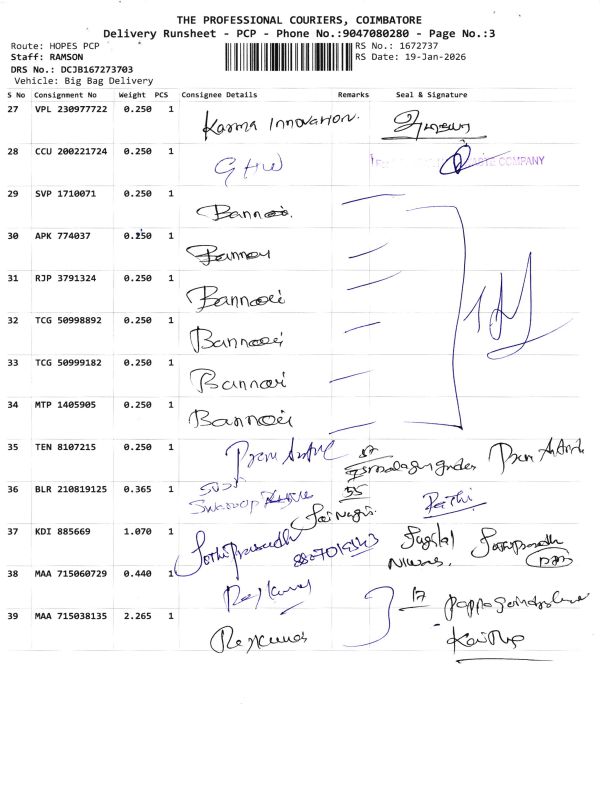 THE PROFESSIONAL COURIERS, COIMBATORE
Delivery Runsheet - PCP - Phone No.:9047080280 - Page No.:3
Route: HOPES PCP RS No.: 1672737
Staff: RAMSON RS Date: 19-Jan-2026
DRS No.: DCJB167273703
Vehicle: Big Bag Delivery
S No Consignment No Weight PCS Consignee Details Remarks Seal & Signature
27 VPL 230977722 0.250 1 Karma Innovation.
28 CCU 200221724 0.250 1 GHW COMPANY
29 SVP 1710071 0.250 1 Bannari.
30 APK 774037 0.250 1 Bannari
31 RJP 3791324 0.250 1 Bannari
32 TCG 50998892 0.250 1 Bannari
33 TCG 50999182 0.250 1 Bannari
34 MTP 1405905 0.250 1 Bannari
35 TEN 8107215 0.250 1 Prem
36 BLR 210819125 0.365 1 Swaroop 55 Sai Nagar
37 KDI 885669 1.070 1
38 MAA 715060729 0.440 1 Rajkumar 17
39 MAA 715038135 2.265 1 Rajkumar